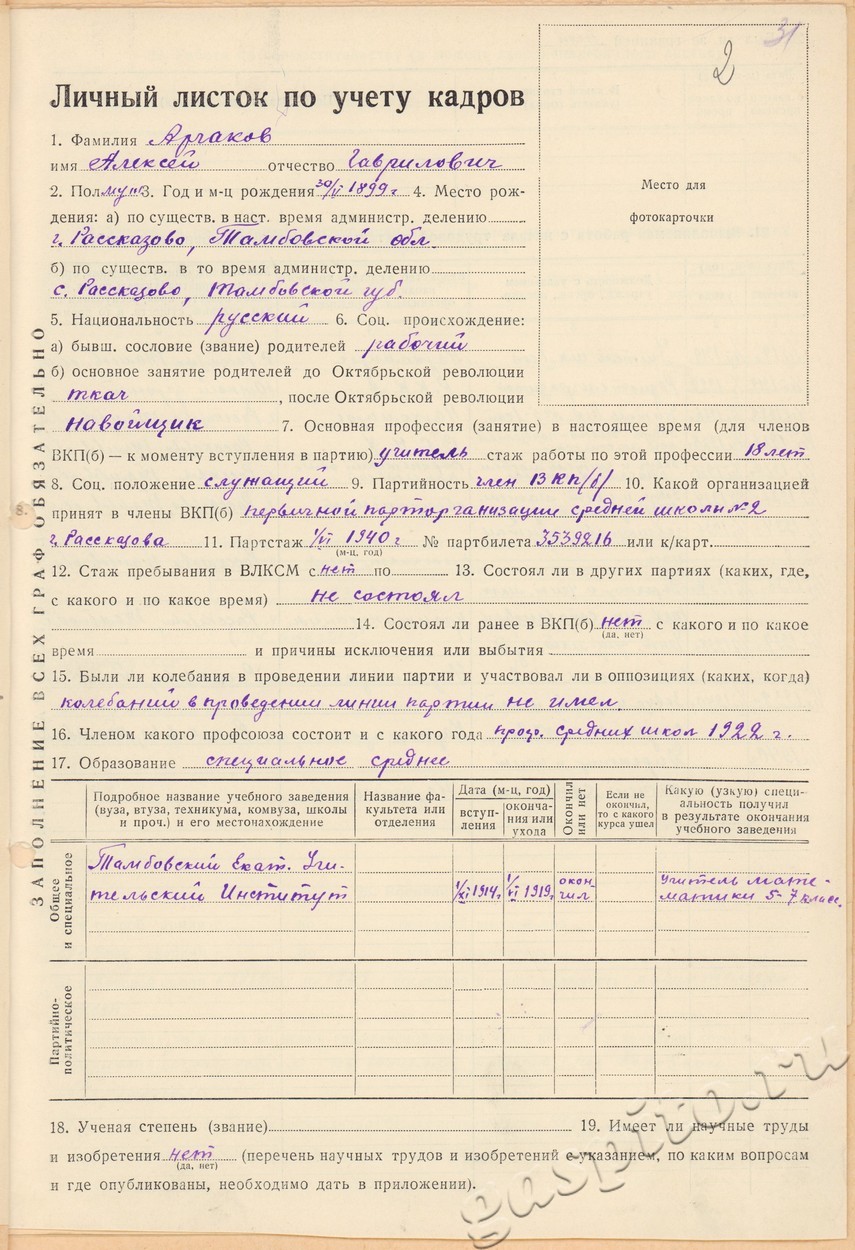 31
2
Личный листок по учету кадров
1. Фамилия Аргаков
имя Алексей отчество Гаврилович
2. Пол муж 3. Год и м-ц рождения 30/VI 1899 г 4. Место рож-
дения: а) по существ. в наст. время администр. делению
г. Рассказово, Тамбовской обл.
б) по существ. в то время администр. делению
с. Рассказово, Тамбовской губ.
5. Национальность русский 6. Соц. происхождение:
а) бывш. сословие (звание) родителей рабочий
б) основное занятие родителей до Октябрьской революции
ткач, после Октябрьской революции
Место для
фотокарточки
навойщик 7. Основная профессия (занятие) в настоящее время (для членов
ВКП(б) — к моменту вступления в партию) учитель стаж работы по этой профессии 18 лет
8. Соц. положение служащий 9. Партийность член ВКП/б/ 10. Какой организацией
принят в члены ВКП(б) первичной парторганизации средней школы №2
г. Рассказова 11. Партстаж 1/VI 1940 г № партбилета 3539216 или к/карт.
(м-ц, год)
12. Стаж пребывания в ВЛКСМ с нет по 13. Состоял ли в других партиях (каких, где,
с какого и по какое время) не состоял
14. Состоял ли ранее в ВКП(б) нет с какого и по какое
(да, нет)
время и причины исключения или выбытия
15. Были ли колебания в проведении линии партии и участвовал ли в оппозициях (каких, когда)
колебаний в проведении линии партии не имел.
16. Членом какого профсоюза состоит и с какого года средних школ 1922 г.
17. Образование специальное среднее
ЗАПОЛНЕНИЕ ВСЕХ ГРАФ ОБЯЗАТЕЛЬНО
Подробное название учебного заведения (вуза, втуза, техникума, комвуза, школы и проч.) и его местонахождение
Название факультета или отделения
Дата (м-ц, год)
вступ-
ления
оконча-
ния или
ухода
Окончил
или нет
Если не
окончил,
то с какого
курса ушел
Какую (узкую) специ-
альность получил
в результате окончания
учебного заведения
Общее
и специальное
Тамбовский Екат. Учи-
тельский Институт
1/XI 1914 г.
1/VI 1919 г.
окон-
чил
Учитель мате-
матики 5-7 класс.
Партийно-
политическое
18. Ученая степень (звание) 19. Имеет ли научные труды
и изобретения нет (перечень научных трудов и изобретений с указанием, по каким вопросам
(да, нет)
и где опубликованы, необходимо дать в приложении).
gaspito.ru